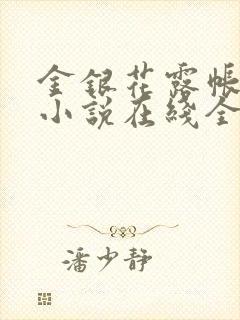 金银花露帐
小说在线全
潘少静